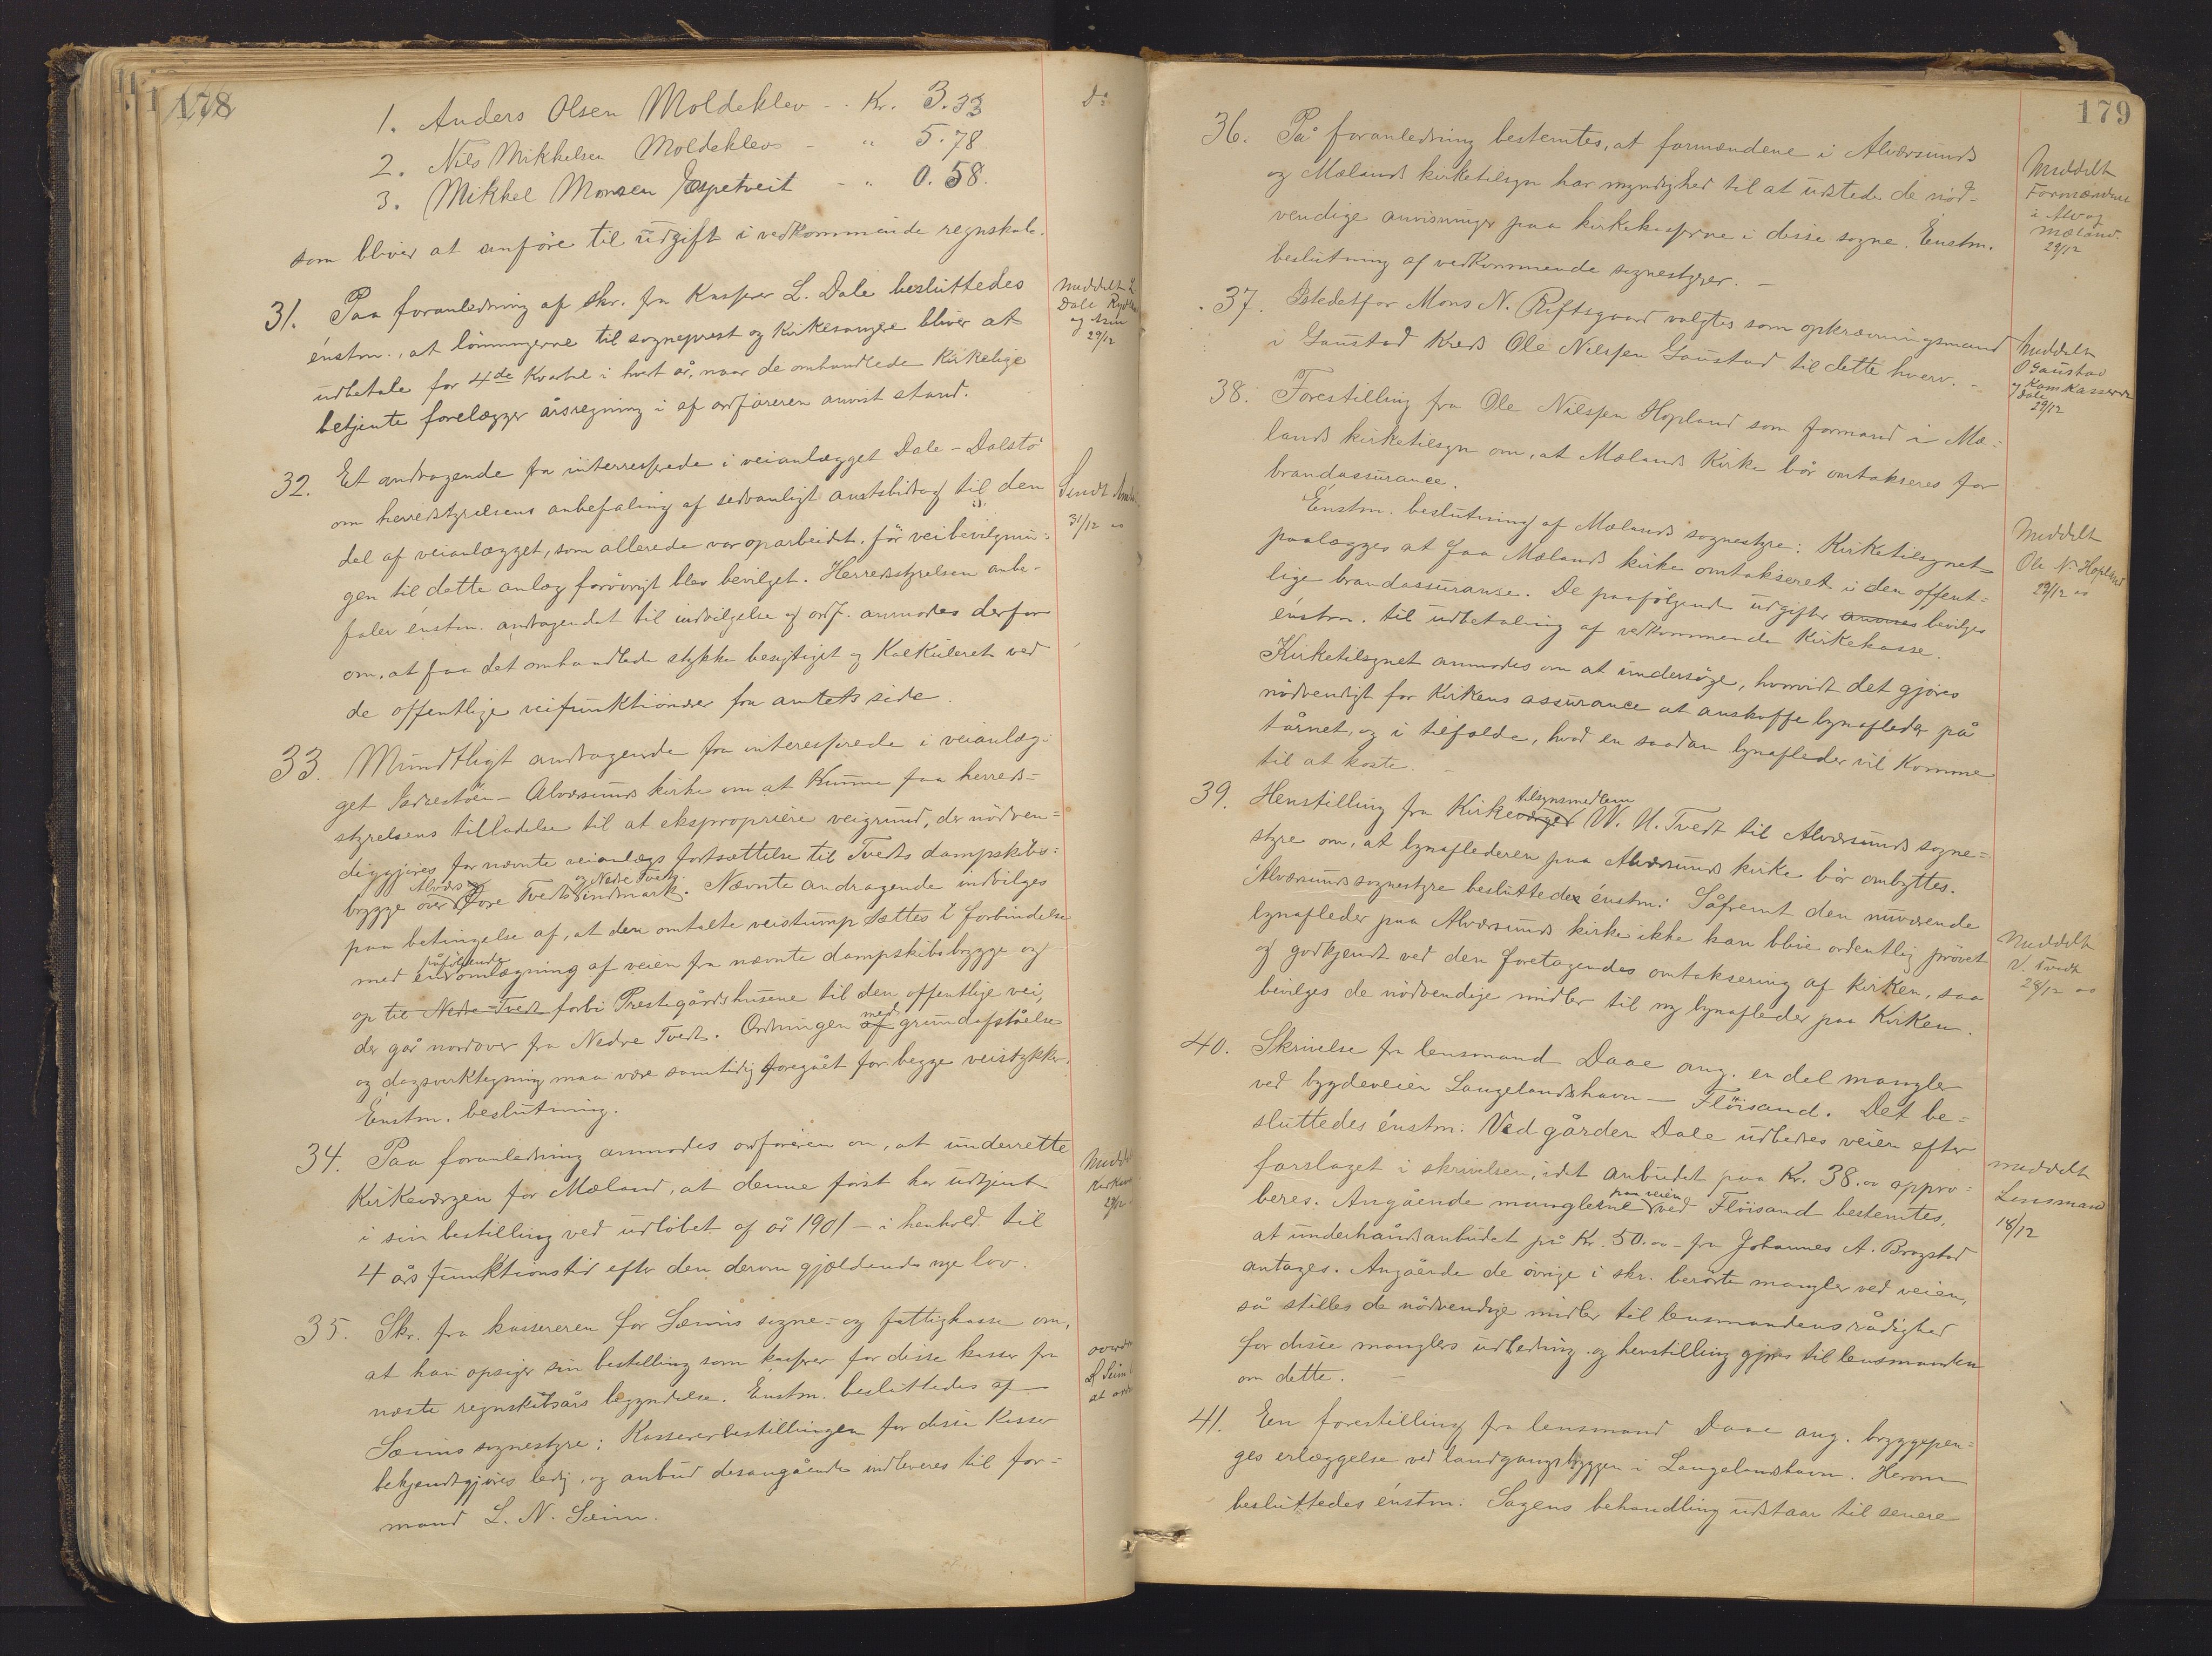 178
1. Anders Olsen Moldeklev - . Kr. 3.33
2. Nils Mikkelsen Moldeklev - " 5.78
3. Mikkel Monsen Espetveit - " 0.58.
som bliver at anföre til udgift i vedkommende regnskab.
Do
31. Paa foranledning af skr. fra Kasserer L. Dale besluttedes
énstm., at lönningerne til sogneprest og Kirkesangere bliver at
udbetale for 4de Kvartal i hvert år, naar de omhandlede Kirkelige
betjente forelægger årsregning i af ordföreren anvist stand.
Meddelt L.
Dale
29/12
32. Et andragende fra interresserede i veianlægget Dale - Dalstö
om herredstyrelsens anbefaling af sedvanligt amtsbidrag til den
del af veianlægget, som allerede var oparbeidet, för veibevilgnin=
gen til dette anlæg forövrigt blev bevilget. Herredsstyrelsen anbe-
faler énstm. andragendet til indvilgelse og ordf. anmodes derfor
om, at faa det omhandlede stykke besigtiget og Kalkuleret ved
de offentlige veifunktionærer fra amtets side.
Sendt
31/12 00
33. Mundtligt andragende fra interesserede i veianlæg=
get Isdalstöen - Alværsunds kirke om at Kunne faa herreds=
styrelsens tilladelse til at ekspropriere veigrund, der nödven=
diggjöres for nævnte veianlægs fortsættelse til Tvedts dampskibs=
Alvers og Nedre Tvedt
brygge over Övre Tvedts indmark. Nævnte andragende indvilges
paa betingelse af, at den omtalte veistump sættes i forbindelse
påfölgende
med en omlægning af veien fra nævnte dampskibsbrygge og
op til Nedre Tvedt forbi Prestegårdshusene til den offentlige vei,
med
der går nordover fra Nedre Tvedt. Ordningen af grundafståelse
og dagsverktegning maa være samtidig foregået for begge veistykker.
Énstm. beslutning.
34. Paa foranledning anmodes ordföreren om, at underrette
Kirkeværgen for Mæland, at denne först har udtjent
i sin bestilling ved udlöbet af år 1901 - i henhold til
4 års funktionstid efter den derom gjældende nye lov.
29/12
35. Skr. fra kassereren for Sæims sogne- og fattigkasse om,
at han opsiger sin bestilling som kasserer for disse kasser fra
næste regnskabsårs begyndelse. Enstm. besluttedes af
Sæims sognestyre: Kassererbestillingen for disse Kasser
bekjendtgjöres ledig, og anbud desangående indleveres til for=
mand L. N. Sæim.
179
36. På foranledning bestemtes, at formændene i Alværsunds
og Mælands kirketilsyn har myndighed til at udstede de nöd-
vendige anvisninger paa kirkekasserne i disse sogne. Énstm.
beslutning af vedkommende sognestyrer. -
Meddelt
Formændene
i Alv og
Mæland.
29/12
37. Istedetfor Mons N. Riftsgaard valgtes som opkrævningsmand
i Gaustad Kreds Ole Nilssen Gaustad til dette hverv. -
Meddelt
O Gaustad
og Kom Kasserer
Dale
29/12
38. Forestilling fra Ole Nilssen Hopland som formand i Mæ=
lands kirketilsyn om, at Mælands Kirke bör omtakseres for
brandassurance.
Énstm. beslutning af Mælands sognestyre: Kirketilsynet
paalægges at faa Mælands kirke omtakseret i den offent=
lige brandassuranse. De paafölgende udgifter anvises bevilges
énstm. til udbetaling af vedkommende Kirkekasse.
Kirketilsynet anmodes om at undersöge, hvorvidt det gjöres
nödvendigt for Kirkens assurance at anskaffe lynafleder på
tårnet, og i tilfælde, hvad en saadan lynafleder vil Komme
til at koste. -
Meddelt
Ole N. Hopland
29/12 00
tilsynsmedlem
39. Henstilling fra Kirkeværge W. H. Tvedt til Alværsunds sogne=
styre om, at lynaflederen paa Alværsunds kirke bör ombyttes.
Alværsunds sognestyre besluttedes énstm: Såfremt den nuværende
lynafleder paa Alværsunds kirke ikke kan blive ordentlig prövet
og godkjendt ved den foretagendes omtaksering af kirken, saa
bevilges de nödvendige midler til ny lynafleder paa Kirken.
Meddelt
V. Tvedt
28/12 00
40. Skrivelse fra lensmand Daae ang. en del mangler
ved bygdeveien Langelandshavn - Flöisand. Det be=
sluttedes énstm: Ved gården Dale udbedres veien efter
forslaget i skrivelsen, idet anbudet paa Kr. 38.00 appro=
paa veien
beres. Angående manglerne ved Flöisand bestemtes,
at underhåndsanbudet på Kr. 50.00 - fra Johannes A. Brogstad
antages. Angående de övrige i skr. berörte mangler ved veien,
så stilles de nödvendige midler til lensmandens rådighed
for disse manglers udbedring og henstilling gjöres til lensmanden
om dette. -
Meddelt
Lensmand
18/12
41. Een forestilling fra lensmand Daae ang. bryggepen=
ges erlæggelse ved landgangsbryggen i Langelandshavn. Herom
besluttedes énstm: Sagens behandling udstaar til senere